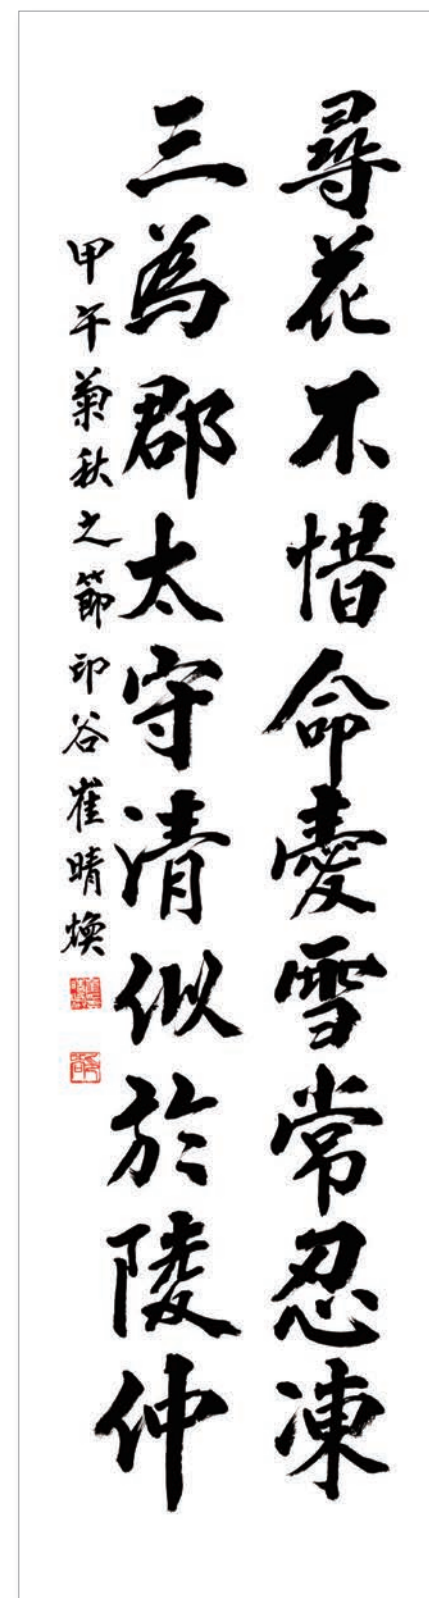 尋花不惜命愛雪常忍凍
三為郡太守清似於陵仲
甲午菊秋之節印谷崔晴煥